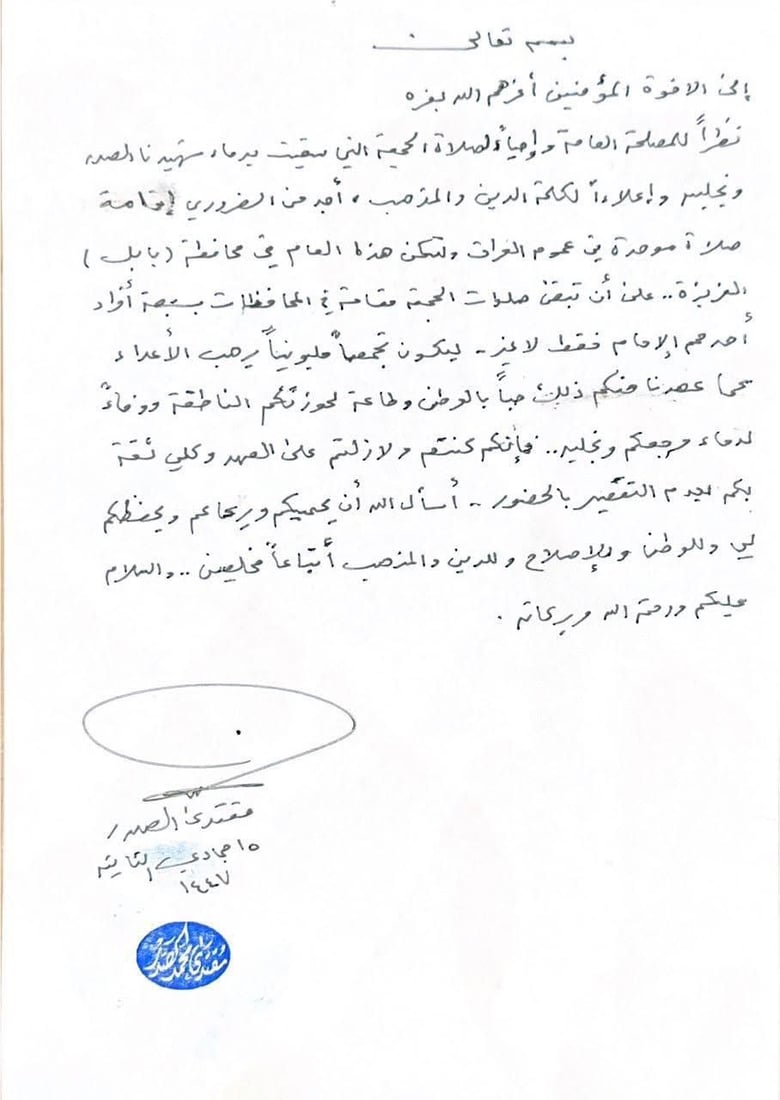 بسمه تعالى
إلى الاخوة المؤمنين أعزهم الله بعزه
نظراً للمصلحة العامة وإحياءً لصلاة الجمعة التي سقيت بدماء شهيدنا الصدر
ونجليه وإعلاءاً لكلمة الدين والمذهب ، أجد من الضروري إقامة
صلاة موحدة في عموم العراق ولتكن هذا العام في محافظة (بابل)
العزيزة .. على أن تبقى صلوات الجمعة مقامة في المحافظات بسبعة أفراد
أحدهم الإمام فقط لا غير .. ليكون تجمعاً مليونياً يرهب الأعداء
كما عهدنا منكم ذلك حباً بالوطن وطاعة لحوزتكم الناطقة ووفاءً
لدماء مرجعكم ونجليه .. فإنكم كنتم ولازلتم على العهد وكلي ثقة
بكم بعدم التقصير بالحضور .. أسأل الله أن يحميكم ويرعاكم ويحفظكم
لي وللوطن وللإصلاح وللدين والمذهب أتباعاً مخلصين .. والسلام
عليكم ورحمة الله وبركاته .
مقتدى الصدر
١٥ جمادى الثانية
١٤٤٧
مقتدى محمد الصدر